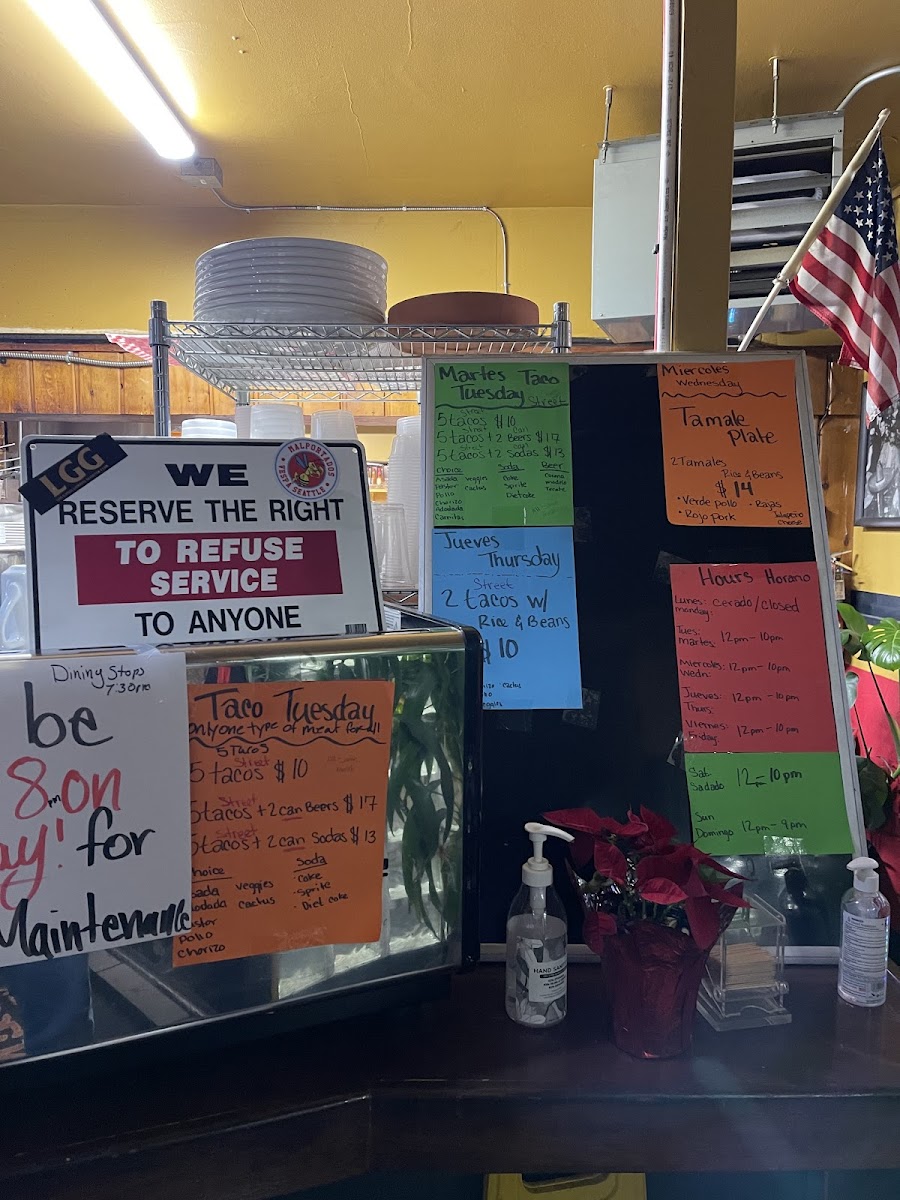 LGG
WE
RESERVE THE RIGHT
TO REFUSE
SERVICE
TO ANYONE
MALPORTADOS
SEATTLE
Dining Stops
7:30pm
be
8pm on
for
Maintenance
Taco Tuesday
only one type of meat for all
5 Tacos
Street
5 tacos $10
Street
5 tacos + 2 can Beers $17
Street
5 tacos + 2 can Sodas $13
Soda
veggies
cactus
Pollo
Chorizo
• Coke
• Sprite
• Diet coke
Martes Taco
Tuesday Street
Street
5 tacos $10
Street
5 tacos + 2 Beers $17
5 tacos + 2 Sodas $13
Choice
Soda
Beer
Asada veggies
Pastor cactus
Pollo
Chorizo
Adobada
Carnitas
Coke
Sprite
Diet coke
Jueves
Thursday
Street
2 tacos w/
Rice & Beans
$10
cactus
Miercoles
Wednesday
Tamale
Plate
2 Tamales
Rice & Beans
$14
• Verde pollo
• Rojo pork
• Rajas
Jalapeño
cheese
Hours Horario
Lunes:
monday: cerado/closed
Tues:
martes: 12pm - 10pm
Miercoles:
Wedn: 12pm - 10pm
Jueves:
Thurs: 12pm - 10pm
Viernes:
Friday: 12pm - 10pm
Sat
Sadado 12 - 10pm
Sun
Domingo 12pm - 9pm
HAND SANITIZER